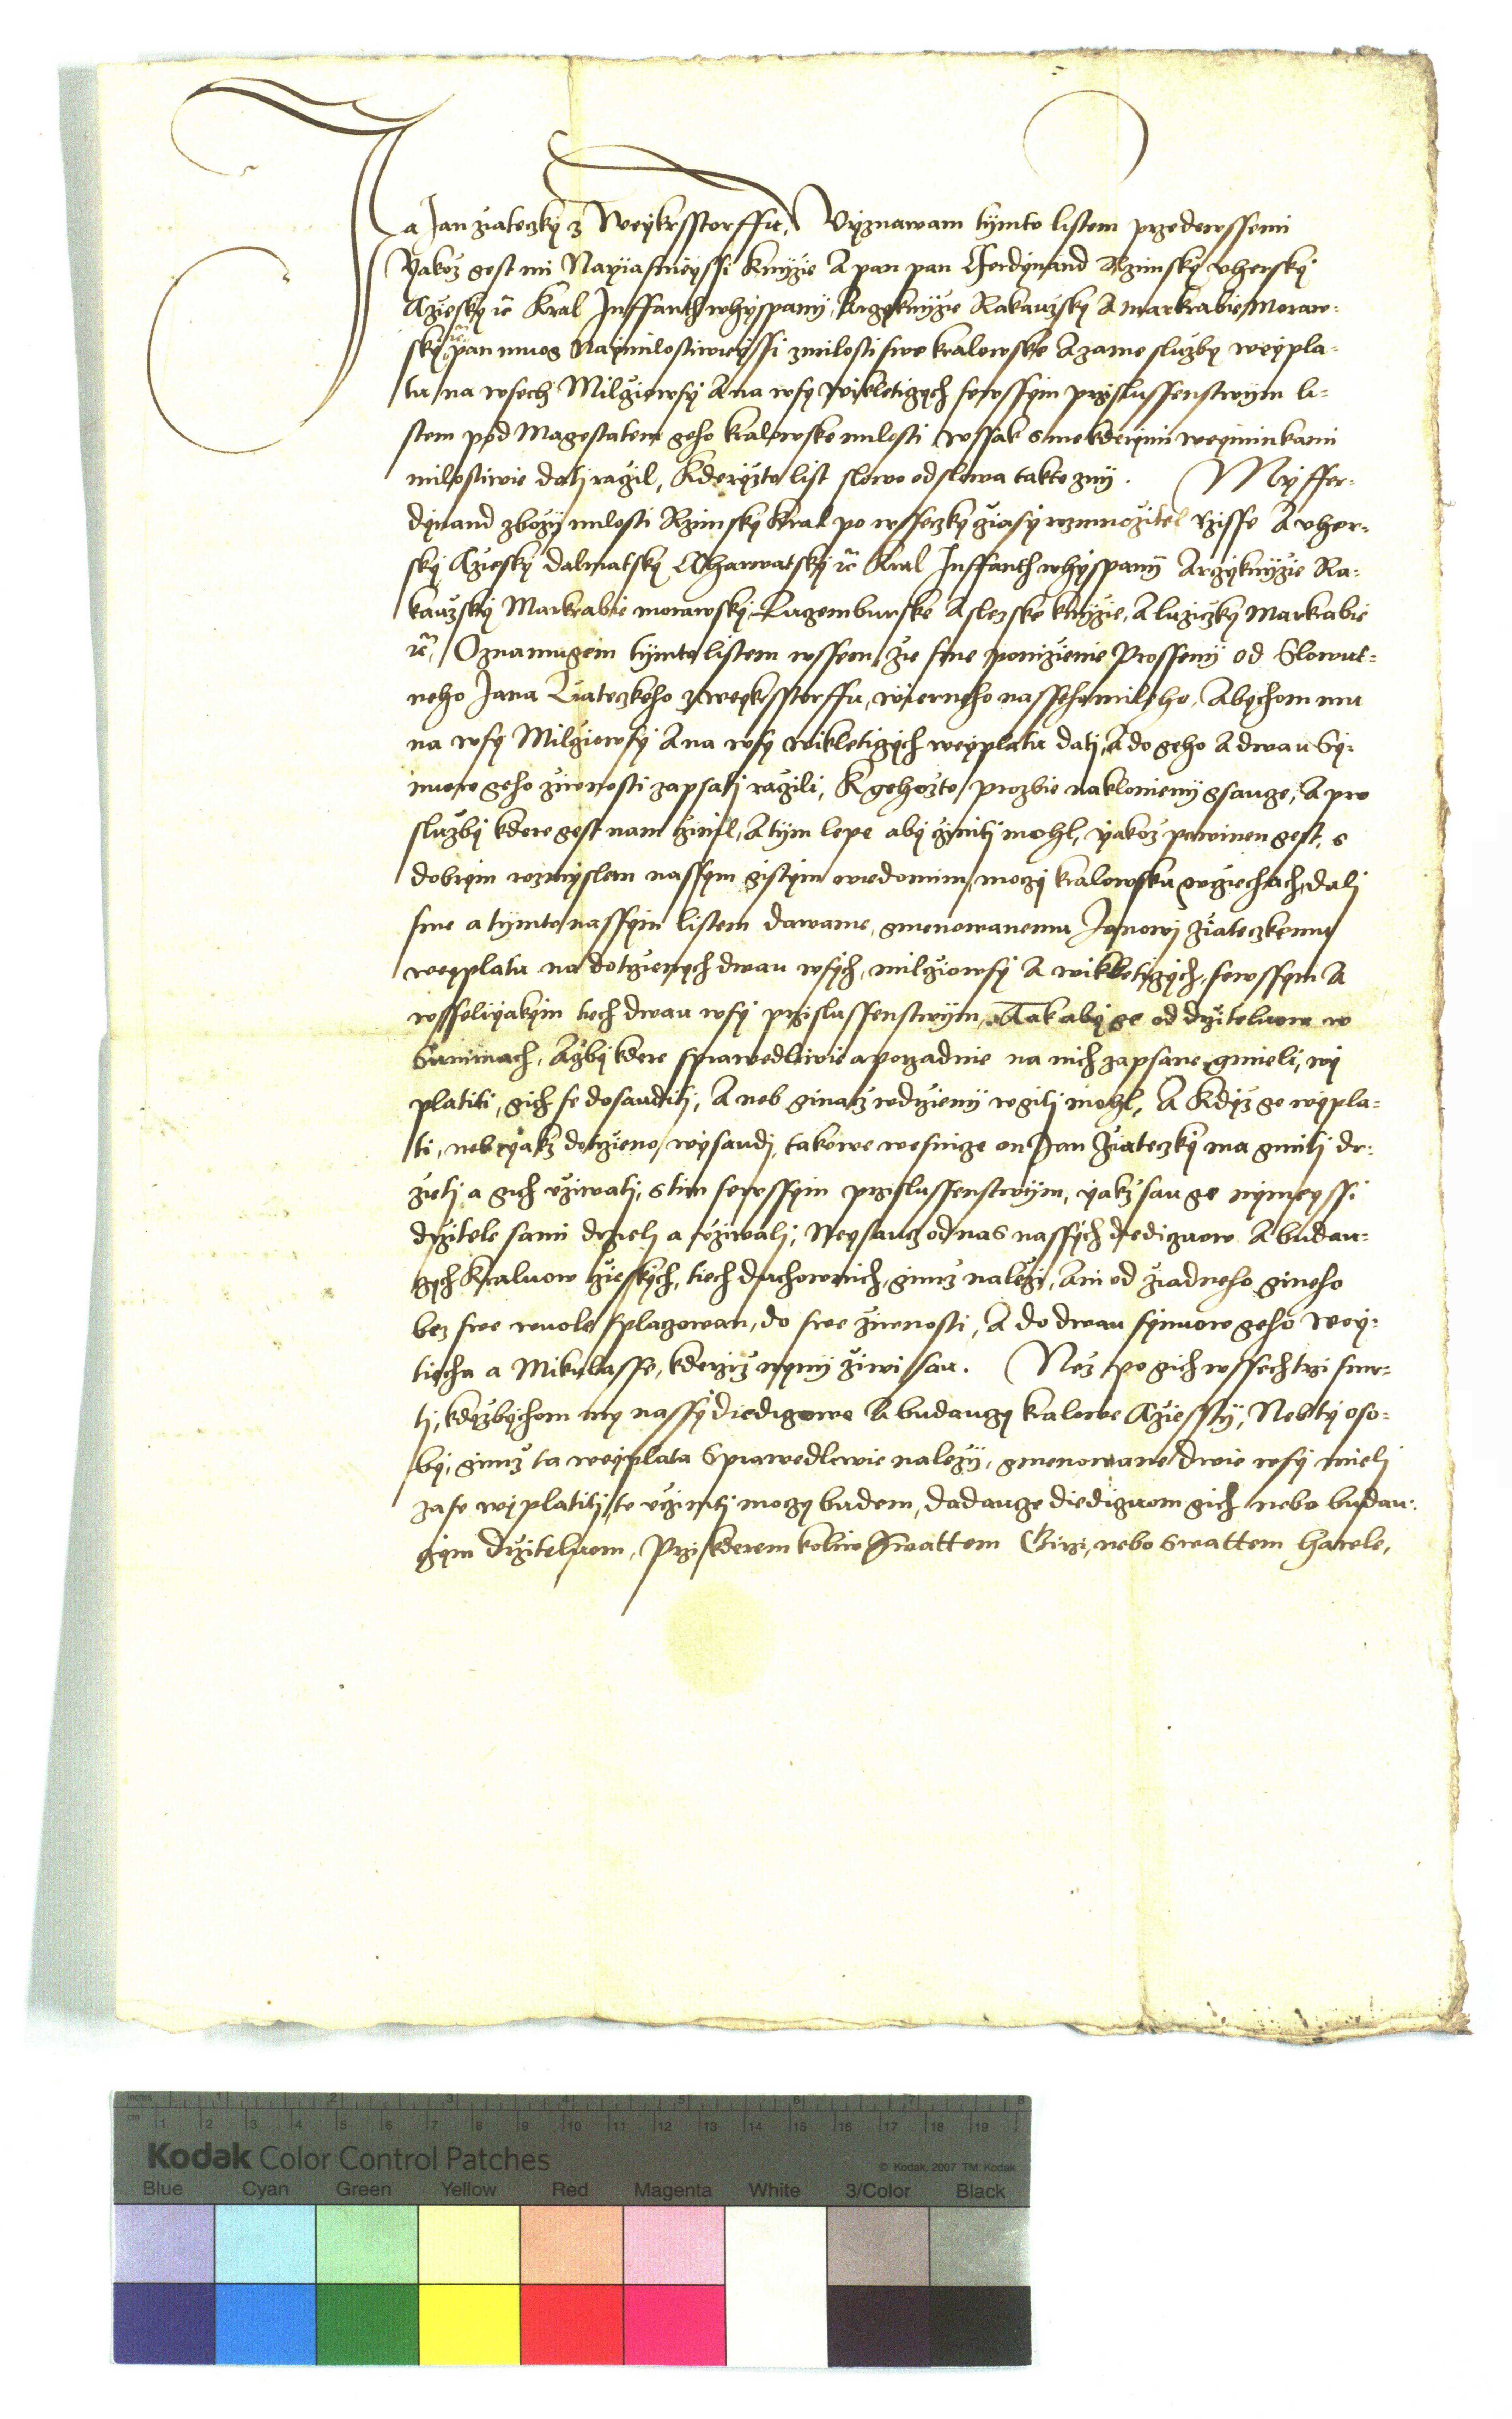 Ja Jan ziateczky z Weykrsstorffu, Vyznawam tymto listem przedewssemi
Yakoz gest mi Nayiasneyssi Knyze A pan pan Ferdynand Rzimsky vhersky
Cziesky ꝛc Kral Inffanth whyspany, Arczyknyze Rakauzsky A markrabie Moraw-
sky ꝛc pan muog Naymilostiweyssi z milosti swe kralowske A za me sluzby weypla-
tu na wsech Milgiowsy A na wsy wikleticzych sewssym przislussenstwym li-
stem pod Magestatem geho kralowske milosti wssak s niekderymi weyminkami
milostiwie dati raczil, Kderyzto list slowo od slowa takto zny. My ffer-
dynand z bozy milosti Rzimsky Kral po wsseczky cziasy rozmnozitel rzisse A vher-
sky Cziesky dalmatsky Charwatsky ꝛc Kral Inffanth whyspany Arczyknyzie Ra-
kauzsky Markrabie morawsky Luczemburske A slezske knyzie, A luziczky Markrabie
ꝛc, Oznamugem tymto listem wssem, zie sme ponizienie Prosseny od Slowut-
neho Jana Ziateczkeho z weykrsstorffu, wierneho nasseho mileho, Abychom mu
na wsy Milgiowsy A na wsy wikleticzych weyplatu dati, A do geho A dwau Sy-
nuow geho ziwnosti zapsati raczili, K gehozto prozbie naklonieny gsauce, A pro
sluzby kdere gest nam czinil, A tym lepe aby cziniti mohl, yakoz powinen gest, s
dobrym rozmyslem nassym gistym wiedomim, moczy kralowsku w cziechach, dali
sme a tymto nassym listem dawame, gmenowanemu Janowi ziateczkemu
weyplatu na dotczienych dwau wsych, milgiowsy A wikleticzych, sewssym A
wsseliyakym tiech dwau wsy przislussenstwym, Tak aby ge od drzitelnow w
Summach, Aczby kdere sprawedliwie a porzadnie na nich zapsane gmieli, wy
platiti, gich se dosauditi, A neb ginacz w drzieny wgiti mohl, A Kdyz ge wypla-
ti, neb yakz dotczieno, wysaudi, takowe wesnicze on Jan Ziateczky ma gmiti dr-
zieti a gich vziwati, s tim sewssym przislussenstwym, yakz sau ge nynieyssi
drzitele sami drzieli a vziwali, Neysauc od nas nassych diediczuow A budau-
czych Kraluow Czieskych, tiech duchownich, gimz nalezi, Ani od ziadneho gineho
bez swe wuole splaczowan, do swe ziwnosti, A do dwau synuow geho Woy-
tiecha a Mikulasse, kderziz nyny ziwi sau. Nez po gich wssech trzi smr-
ti, kdyzbychom my nassy diediczowe A budauczy kralowe Cziessty, Neb ty oso-
by, gimz ta weyplata Sprawedliwie nalezy, gmenowane dwie wsy mieli
zase wyplatiti, to vcziniti moczy budem, dadauce diediczuom gich nebo budau-
czym drziteluom, Przi kderem koliw Swattem Girzi, nebo Swattem hawele,
inches 1 2 3 4 5 6 7 8
cm 1 2 3 4 5 6 7 8 9 10 11 12 13 14 15 16 17 18 19
Kodak Color Control Patches © Kodak, 2007 TM: Kodak
Blue Cyan Green Yellow Red Magenta White 3/Color Black